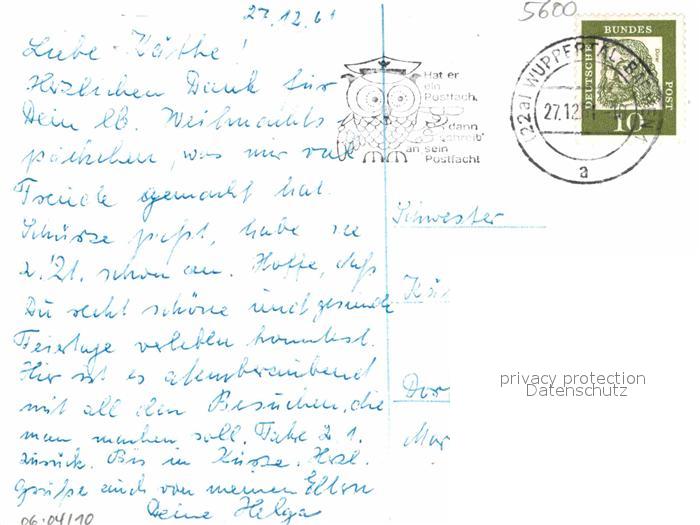 27.12.61
5600
Liebe Käthe!
Herzlichen Dank für
Dein lb. Weihnachts
päckchen, was mir viel
Freude gemacht hat.
Schürze paßt, habe sie
z. Zt. schon an. Hoffe, daß
Du recht schöne und gesunde
Feiertage verleben konntest.
Hier ist es atemberaubend
mit all den Besuchen, die
man machen soll. Fahre 2.1.
zurück. Bis in Kürze. Herzl.
Grüße auch von meinen Eltern
Deine Helga
06:04/10
Hat er
ein
Postfach,
dann
schreib'
an sein
Postfach!
(22a) WUPPERTAL-
27.12.
a
DEUTSCHE
BUNDES
POST
10
Schwester
privacy protection
Datenschutz